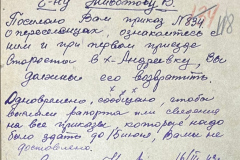 С-ну Животову В.
Посылаю Вам приказ №894
о переселенцах, ознакомтесь
ним и при первом приезде
в х-Андреевку, Вы
должны его возвратить.
Одновременно, сообщаю, чтобы
рапорта или сведения
на все приказы, которые надо
было здать до Вами не
доставлено.